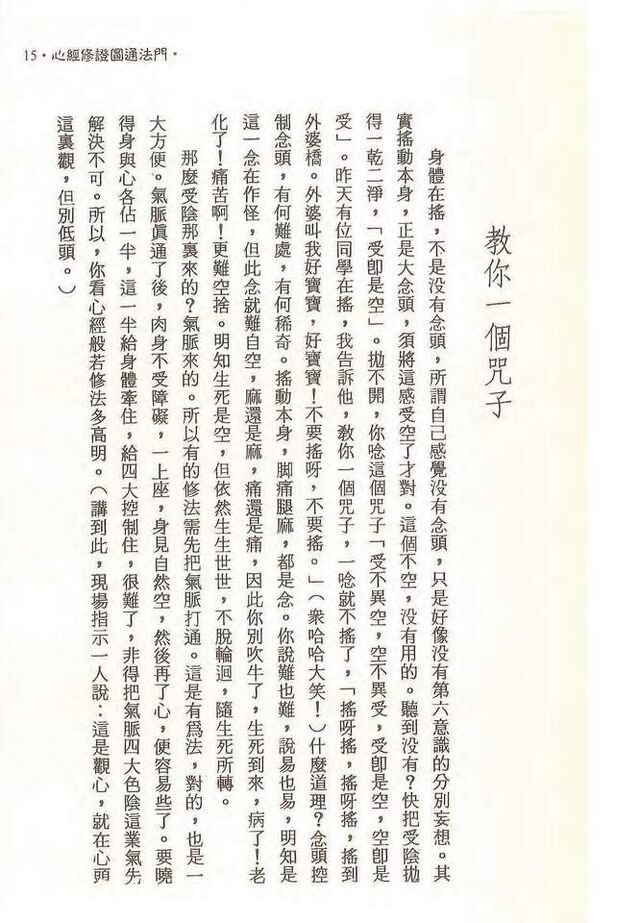 15・心經修證圓通法門・
教你一個咒子
身體在搖，不是没有念頭，所謂自己感覺没有念頭，只是好像没有第六意識的分別妄想。其
實搖動本身，正是大念頭，須將這感受空了才對。這個不空，没有用的。聽到没有？快把受陰拋
得一乾二淨，「受卽是空」。拋不開，你唸這個咒子「受不異空，空不異受，受卽是空，空卽是
受」。昨天有位同學在搖，我告訴他，教你一個咒子，一唸就不搖了，「搖呀搖，搖呀搖，搖到
外婆橋。外婆叫我好寶寶，好寶寶！不要搖呀，不要搖。」（衆哈哈大笑！）什麼道理？念頭控
制念頭，有何難處，有何稀奇。搖動本身，脚痛腿麻，都是念。你說難也難，說易也易，明知是
這一念在作怪，但此念就難自空，麻還是麻，痛還是痛，因此你別吹牛了，生死到來，病了！老
化了！痛苦啊！更難空捨。明知生死是空，但依然生生世世，不脫輪迴，隨生死所轉。
那麼受陰那裏來的？氣脈來的。所以有的修法需先把氣脈打通。這是有爲法，對的，也是一
大方便。氣脈眞通了後，肉身不受障礙，一上座，身見自然空，然後再了心，便容易些了。要曉
得身與心各佔一半，這一半給身體牽住，給四大控制住，很難了，非得把氣脈四大色陰這業氣先
解決不可。所以，你看心經般若修法多高明。（講到此，現場指示一人說：這是觀心，就在心頭
這裏觀，但別低頭。）